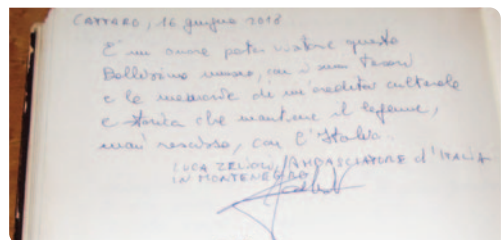 CATTARO, 16 giugno 2018
E' un onore poter visitare questo
Bellissimo museo, con i suoi tesori
e le memorie di un'eredità culturale
e storica che mantiene il legame,
mai reciso, con l'Italia.
LUCA ZELIOLI, AMBASCIATORE d'ITALIA
IN MONTENEGRO